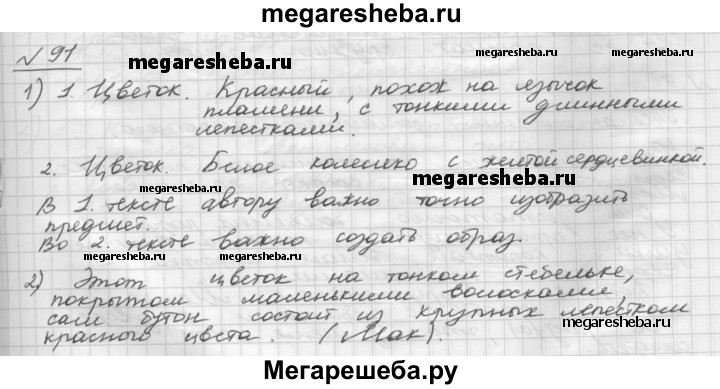 megaresheba.ru
№ 91
megaresheba.ru
1) 1. Цветок. Красный, похож на язычок
пламени, с тонкими длинными
лепестками.
2. Цветок. Белое колесико с желтой сердцевинкой.
megaresheba.ru
megaresheba.ru
В 1. тексте автору важно точно изобразить
предмет.
Во 2. тексте важно создать образ.
2) Этот цветок на тонком стебельке,
покрытом маленькими волосками,
сам бутон состоит из крупных лепестков
megaresheba.ru
красного цвета. (Мак).
Мегарешеба.ру